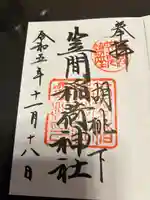 奉拝
胡桃下
笠間稲荷神社
令和五年十一月十八日